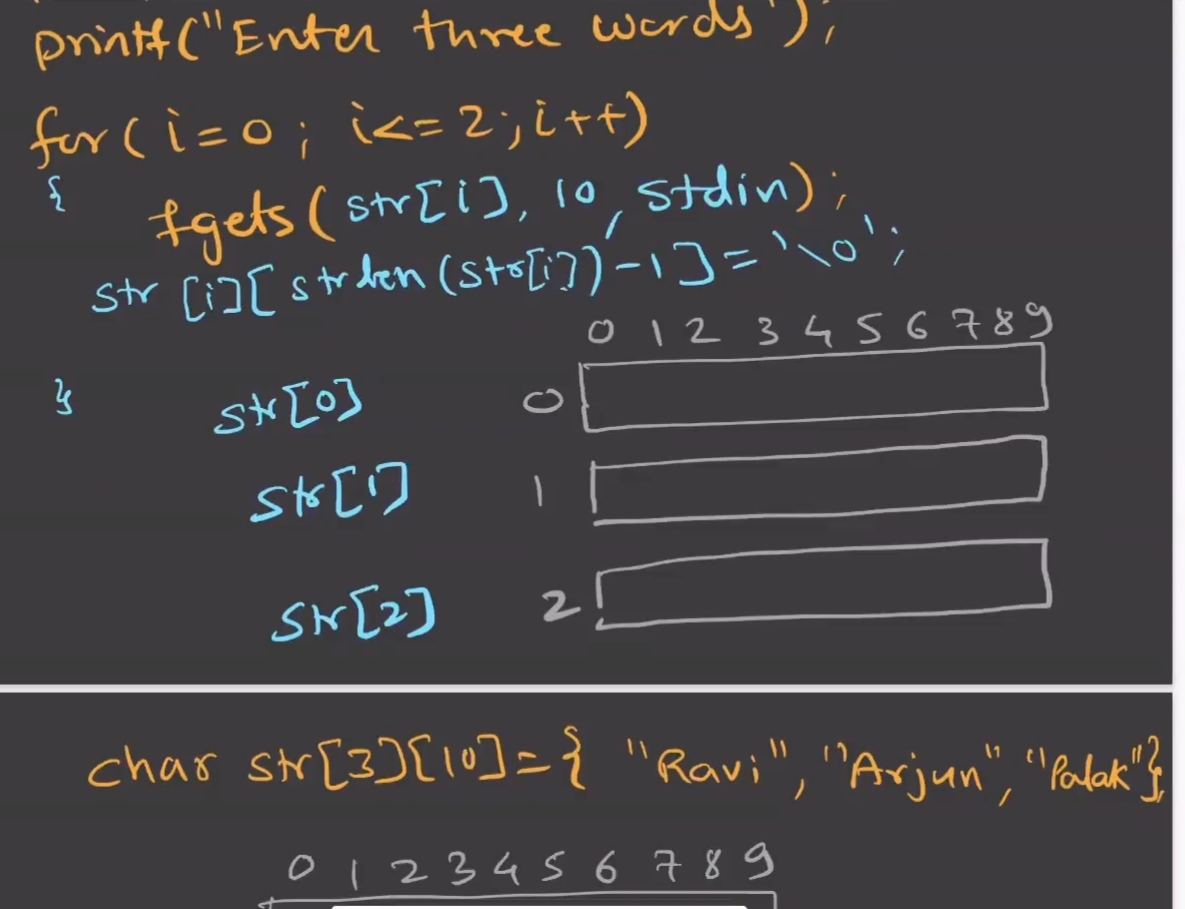 printf("Enter three words");
for(i=0; i<=2;i++)
{
fgets(str[i], 10, stdin);
str[i][strlen(str[i])-1]='\0';
}
0 1 2 3 4 5 6 7 8 9
str[0] 0
str[1] 1
str[2] 2
char str[3][10]={ "Ravi", "Arjun", "Palak"};
0 1 2 3 4 5 6 7 8 9